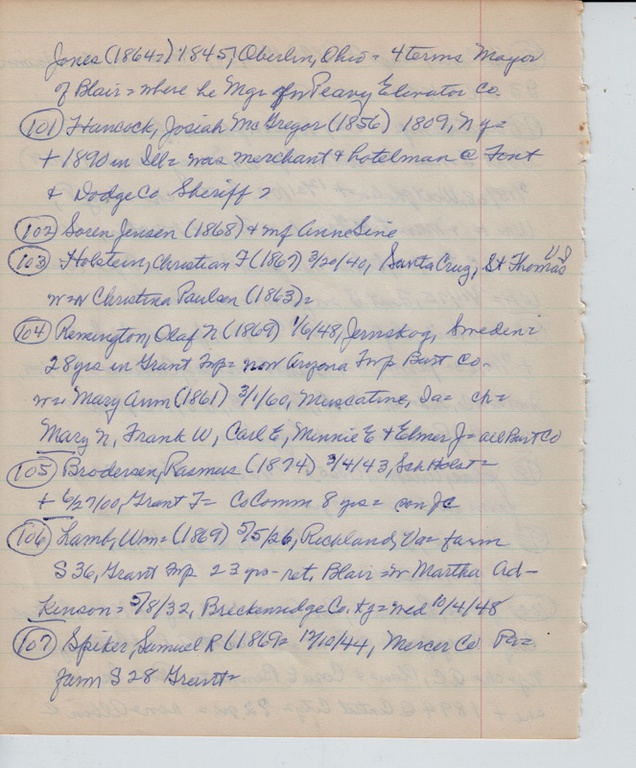 Jones (1864=) 1845, Oberlin, Ohio = 4 terms Mayor
of Blair = where he Mgr Peavy Elevator Co.
(101) Hancock, Josiah McGregor (1856) 1809, Ny =
+ 1890 in Ill = was merchant & hotelman @ Font
& Dodge Co Sheriff
(102) Soren Jensen (1868) & mf Anne Sine
(103) Holstein, Christian F (1867) 3/20/40, Santa Cruz, St Thomas
w = w Christina Paulsen (1863) =
(104) Remington, Olaf N (1869) 1/6/48, Jernskog, Sweden =
28 yrs in Grant Twp = now Arizona Twp Burt Co -
w = Mary Ann (1861) 3/1/60, Muscatine, Ia = ch =
Mary N, Frank W, Carl E, Minnie E & Elmer J = all Burt Co
(105) Brodersen, Rasmus (1874) 3/4/43, Sch Holst =
+ 6/27/00, Grant T = Co Comm 8 yrs =
(106) Lamb, Wm = (1869) 5/5/26, Richland, Va = farm
S 36, Grant Twp 23 yrs - ret, Blair = w Martha Ad-
Kinson = 5/8/32, Breckenridge Co. Ky = wed 10/4/48
(107) Spiker, Samuel R (1869 = 12/10/44, Mercer Co Pa =
farm S 28 Grant =